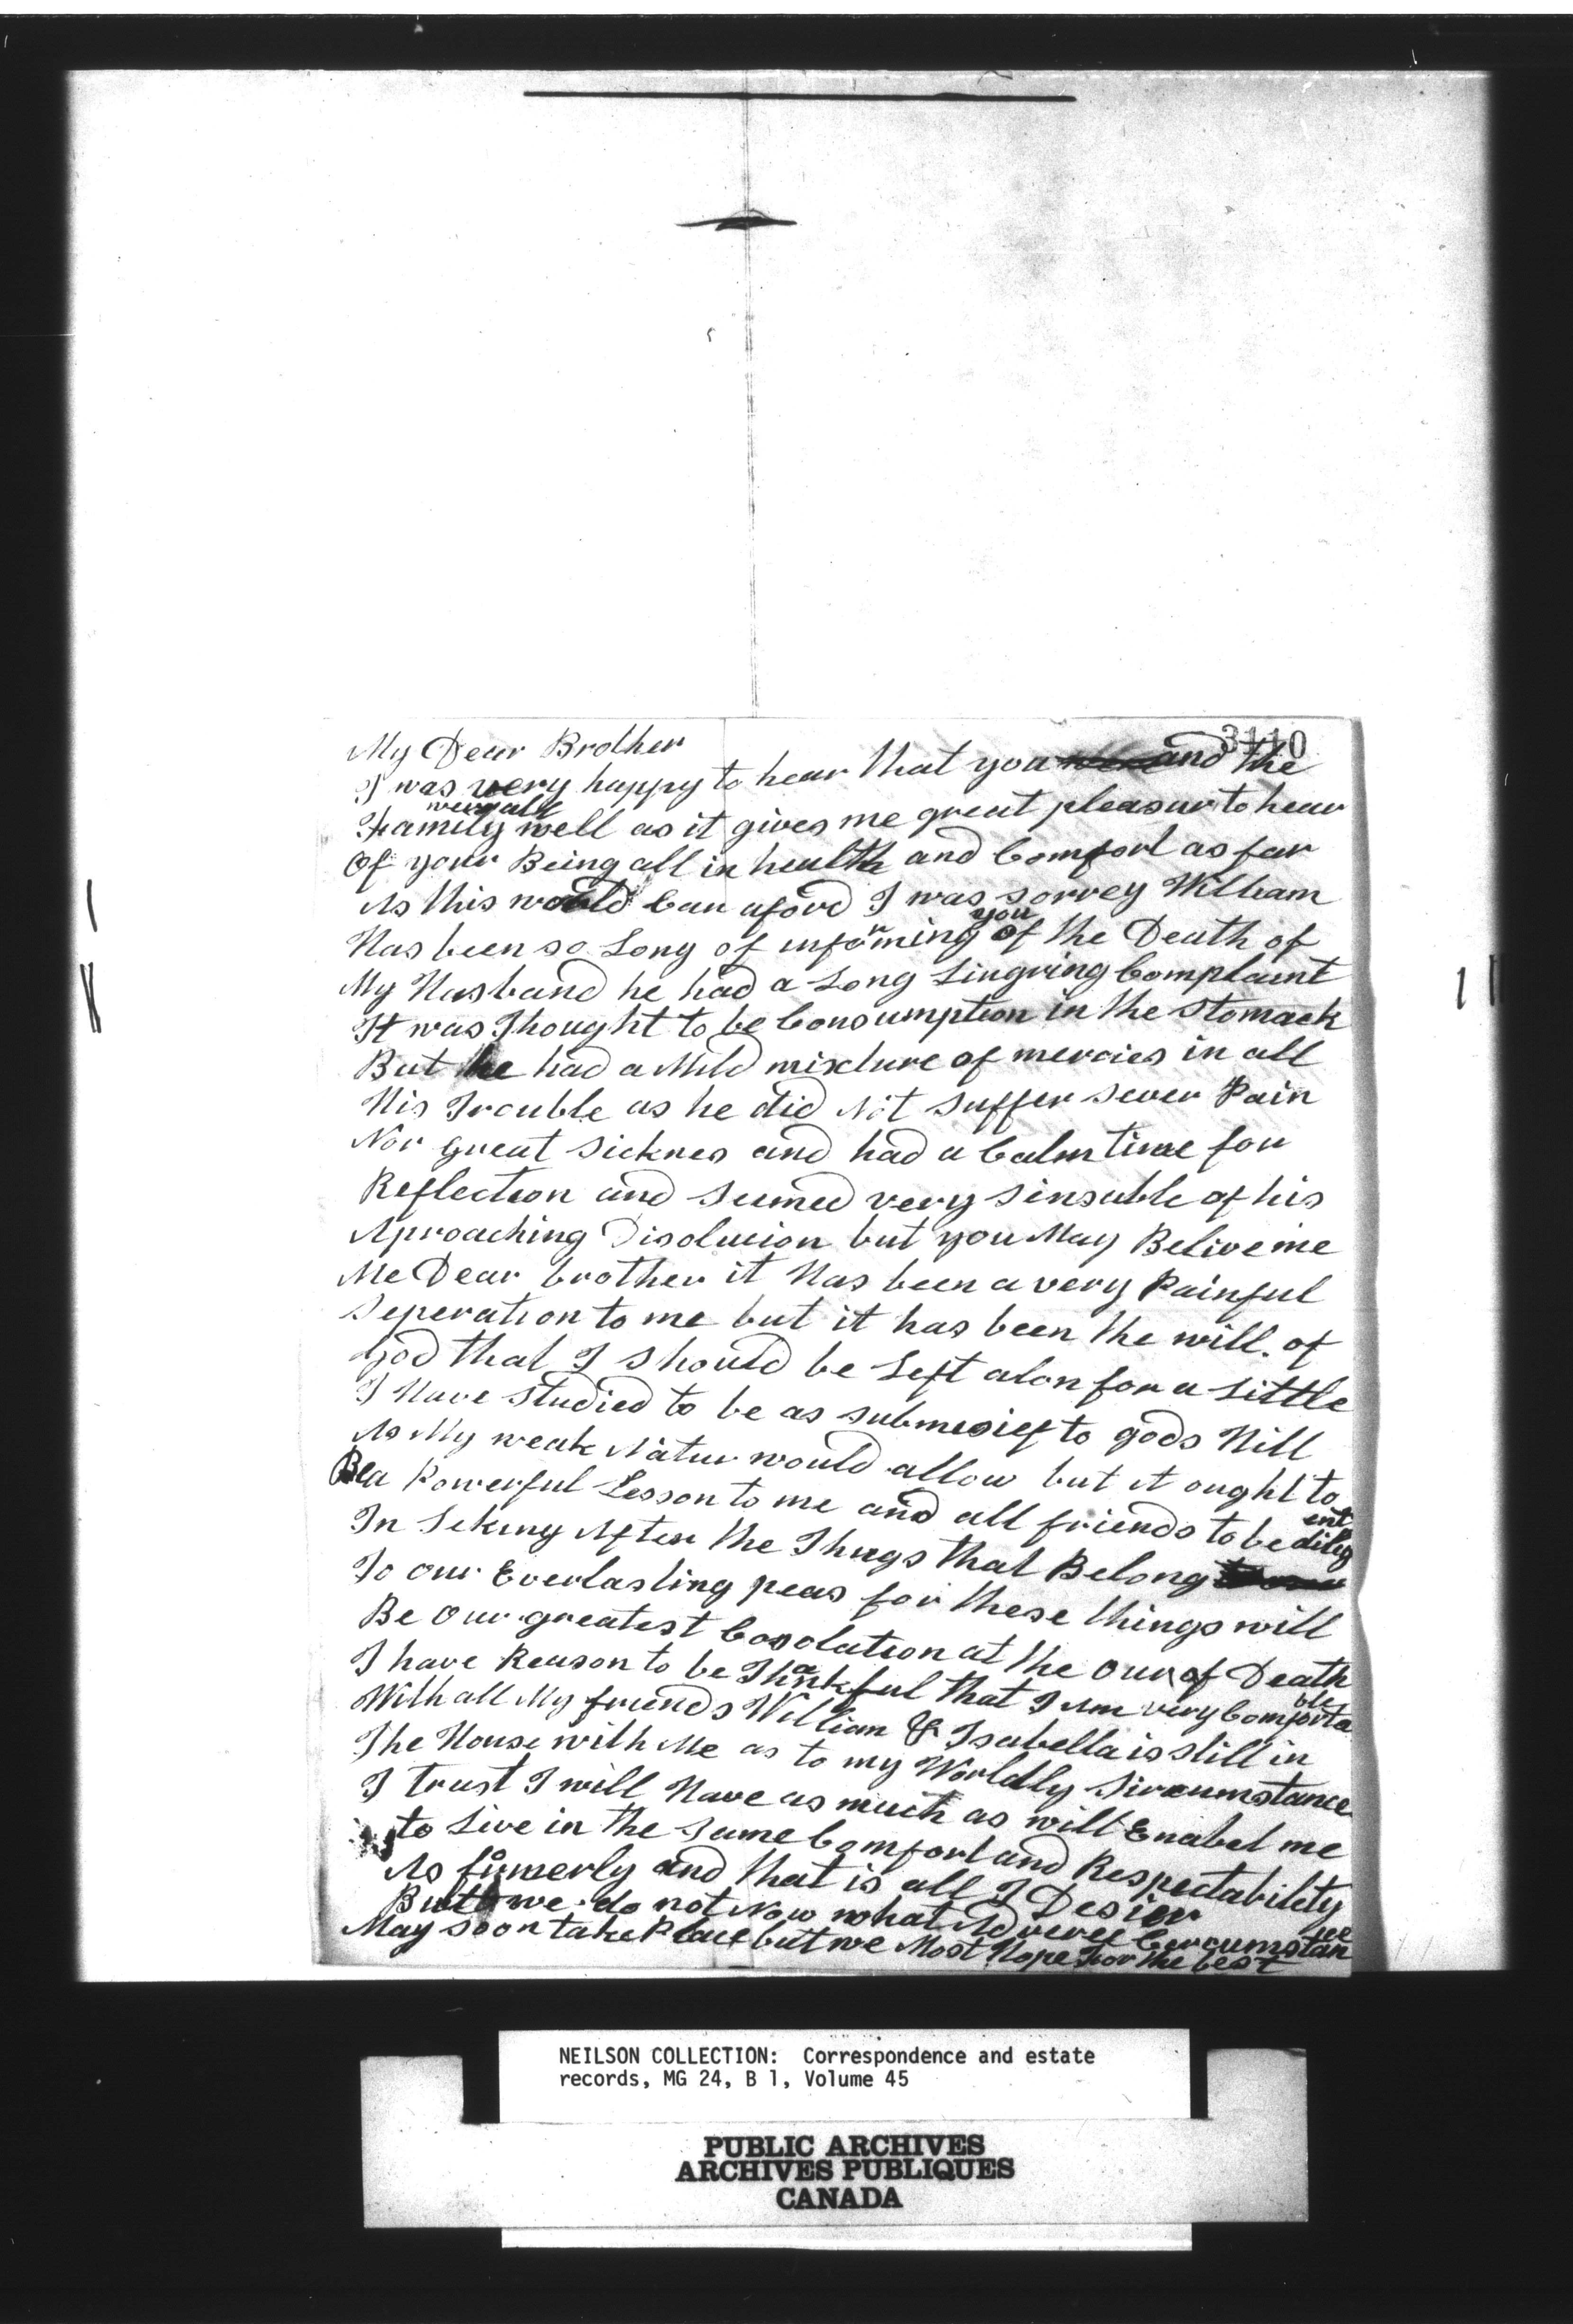 3110
My Dear Brother
I was very happy to hear that you and the
were all
Family well as it gives me great pleasur to hear
Of your Being all in health and Comfort as far
As this world Can aford I was sorrey William
Has been so Long of informing you of the Death of
My Husband he had a Long Lingring Complaint
It was Thought to be Consumption in the Stomack
But he had a Mild mixture of mercies in all
His Trouble as he did Not suffer sever Pain
Nor great sicknes and had a Calm time for
Reflection and seemed very sinsable of his
Aproaching Disolucion but you May Belive me
Me Dear brother it Has been a very Painful
Seperation to me but it has been the will of
God that I should be Left alon for a Little
I Have studied to be as submesief to gods Will
As My weak Natur would allow but it ought to
Be a Powerful Lesson to me and all friends to be diligent
In Seking After the Things that Belong
To our Everlasting peas for these things will
Be Our greatest Cosolation at the Our of Death
I have Reason to be Thankful that I Am very Comfortable
With all My friends William & Isabella is still in
The House with Me as to my Worldly Sircumstance
I trust I will Have as much as will Enabel me
to Live in the same Comfort and Respectability
As formerly and that is all I Desier
But we do not Now what Adverce Cercumstance
May soon take Place but we Most Hope For the best
NEILSON COLLECTION: Correspondence and estate
records, MG 24, B 1, Volume 45
PUBLIC ARCHIVES
ARCHIVES PUBLIQUES
CANADA